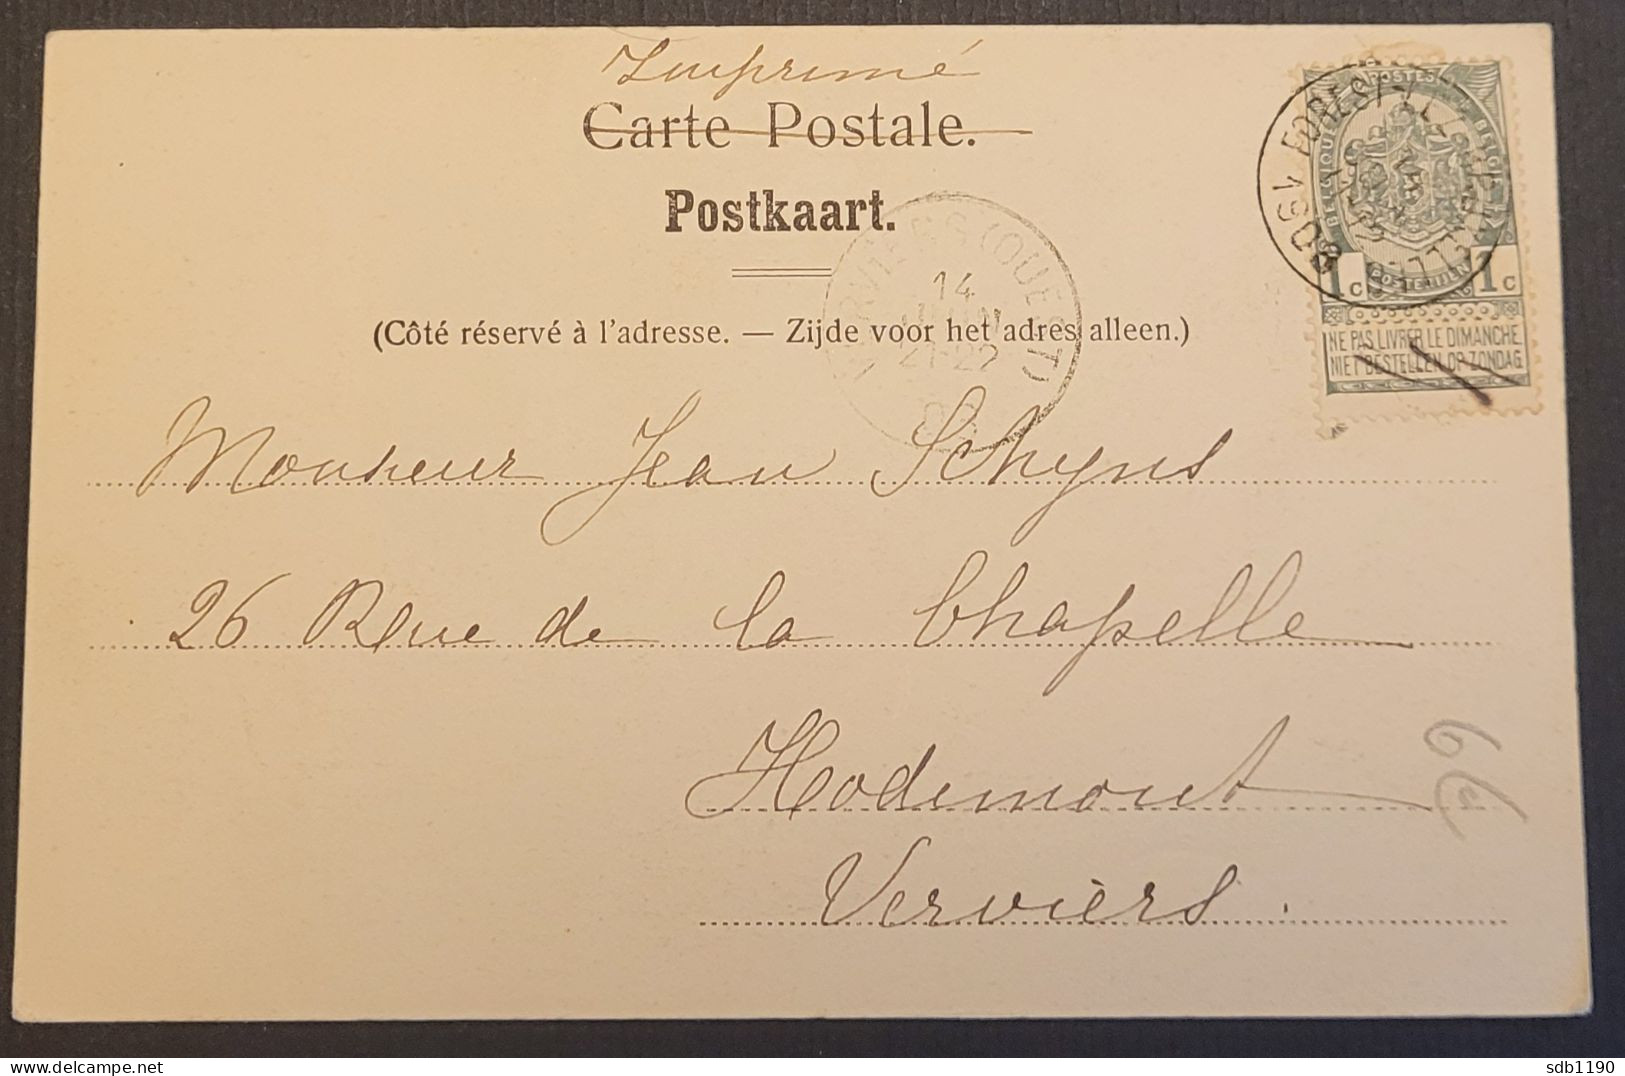 Imprimé
Carte Postale.
Postkaart.
(Côté réservé à l'adresse. — Zijde voor het adres alleen.)
POSTES
BELGIQUE BELGIË
POSTERIJEN
1c 1c
NE PAS LIVRER LE DIMANCHE
NIET BESTELLEN OP ZONDAG
VERVIERS (OUEST)
14
JUIN
21-22
Monsieur Jean Schyns
26 Rue de la Chapelle
Hodimont
Verviers.
6€
sdb1190